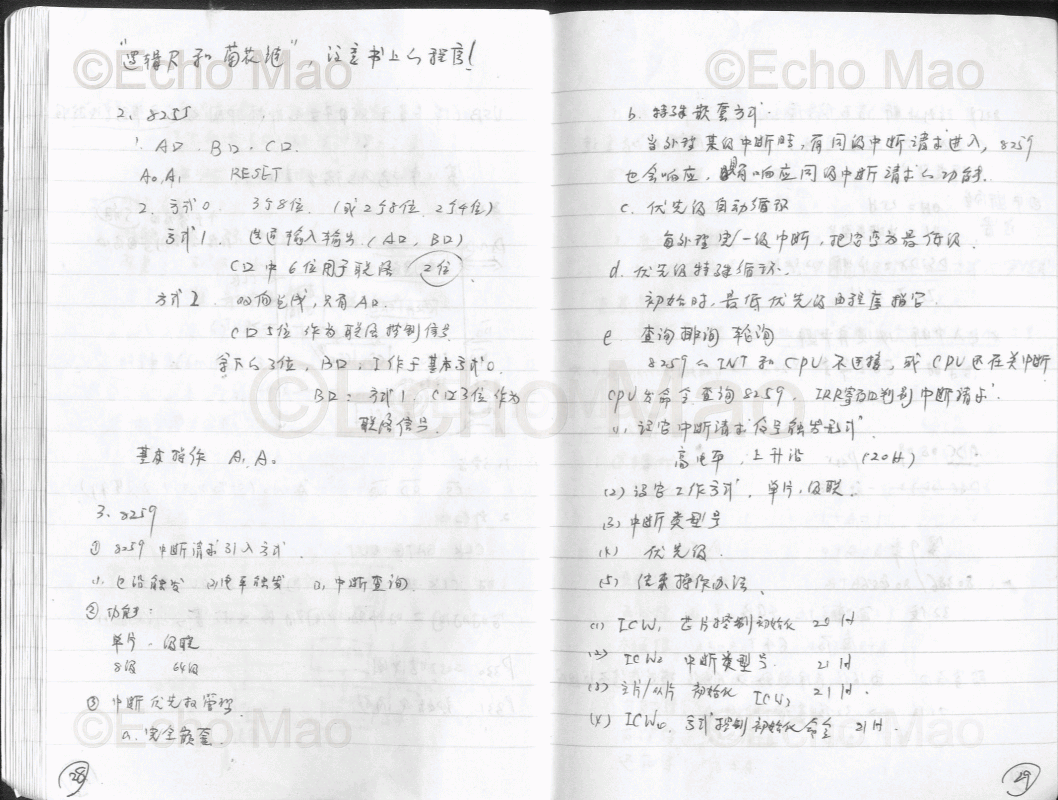 "逻辑尺和菊花链"，注意书上的程序！
2. 8255
1. A口. B口. C口.
A₀, A₁ RESET
2. 方式0. 3个8位. (或2个8位, 2个4位)
方式1. 选通输入输出 (A口, B口)
C口中6位用于联络 2位
方式2 双向总线, 只有A口
C口5位作为联络控制信号.
余下的3位, B口: 工作于基本方式0.
B口: 方式1. C口3位作为
联络信号.
基本操作 A₁ A₀
3. 8259
① 8259 中断请求引入方式.
(1) 边沿触发 (2) 电平触发 (3) 中断查询
② 功能:
单片. 级联
8级 64级
③ 中断优先权管理.
a. 完全嵌套.
28
b. 特殊嵌套方式.
当处理某级中断时, 有同级中断请求进入, 8259
也会响应. 响应同级中断请求的功能.
c. 优先级自动循环
每处理完一级中断, 把它变为最低级.
d. 优先级特殊循环.
初始时, 最低优先级由程序指定.
e 查询 轮询
8259的INT和CPU不连接, 或CPU处在关中断
CPU发命令查询8259. IRR 判别中断请求.
(1) 设定中断请求信号触发形式.
高电平, 上升沿 (20H)
(2) 设定工作方式. 单片, 级联.
(3) 中断类型号
(4) 优先级.
(5) 结束操作办法.
(1) ICW₁ 芯片控制初始化 20H
(2) ICW₂ 中断类型号. 21H
(3) 主片/从片 初始化 ICW₃ 21H.
(4) ICW₄. 方式控制初始化命令 21H
29
©Echo Mao
©Echo Mao
©Echo Mao
©Echo Mao
©Echo Mao